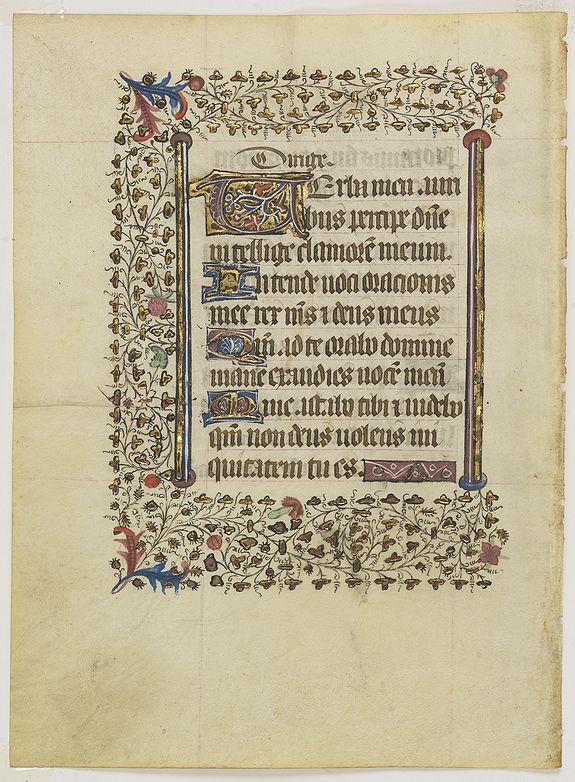 Dirige.
Verba mea auri
bus percipe dn̄e
intellige clamorē meum.
Intende uoci oracionis
mee rex m̄s ⁊ deus meus
Qm̄ ad te orabo domine
mane exaudies uocē meā
Mane astabo tibi ⁊ uidebo
qm̄ non deus uolens ini
quitatem tu es.